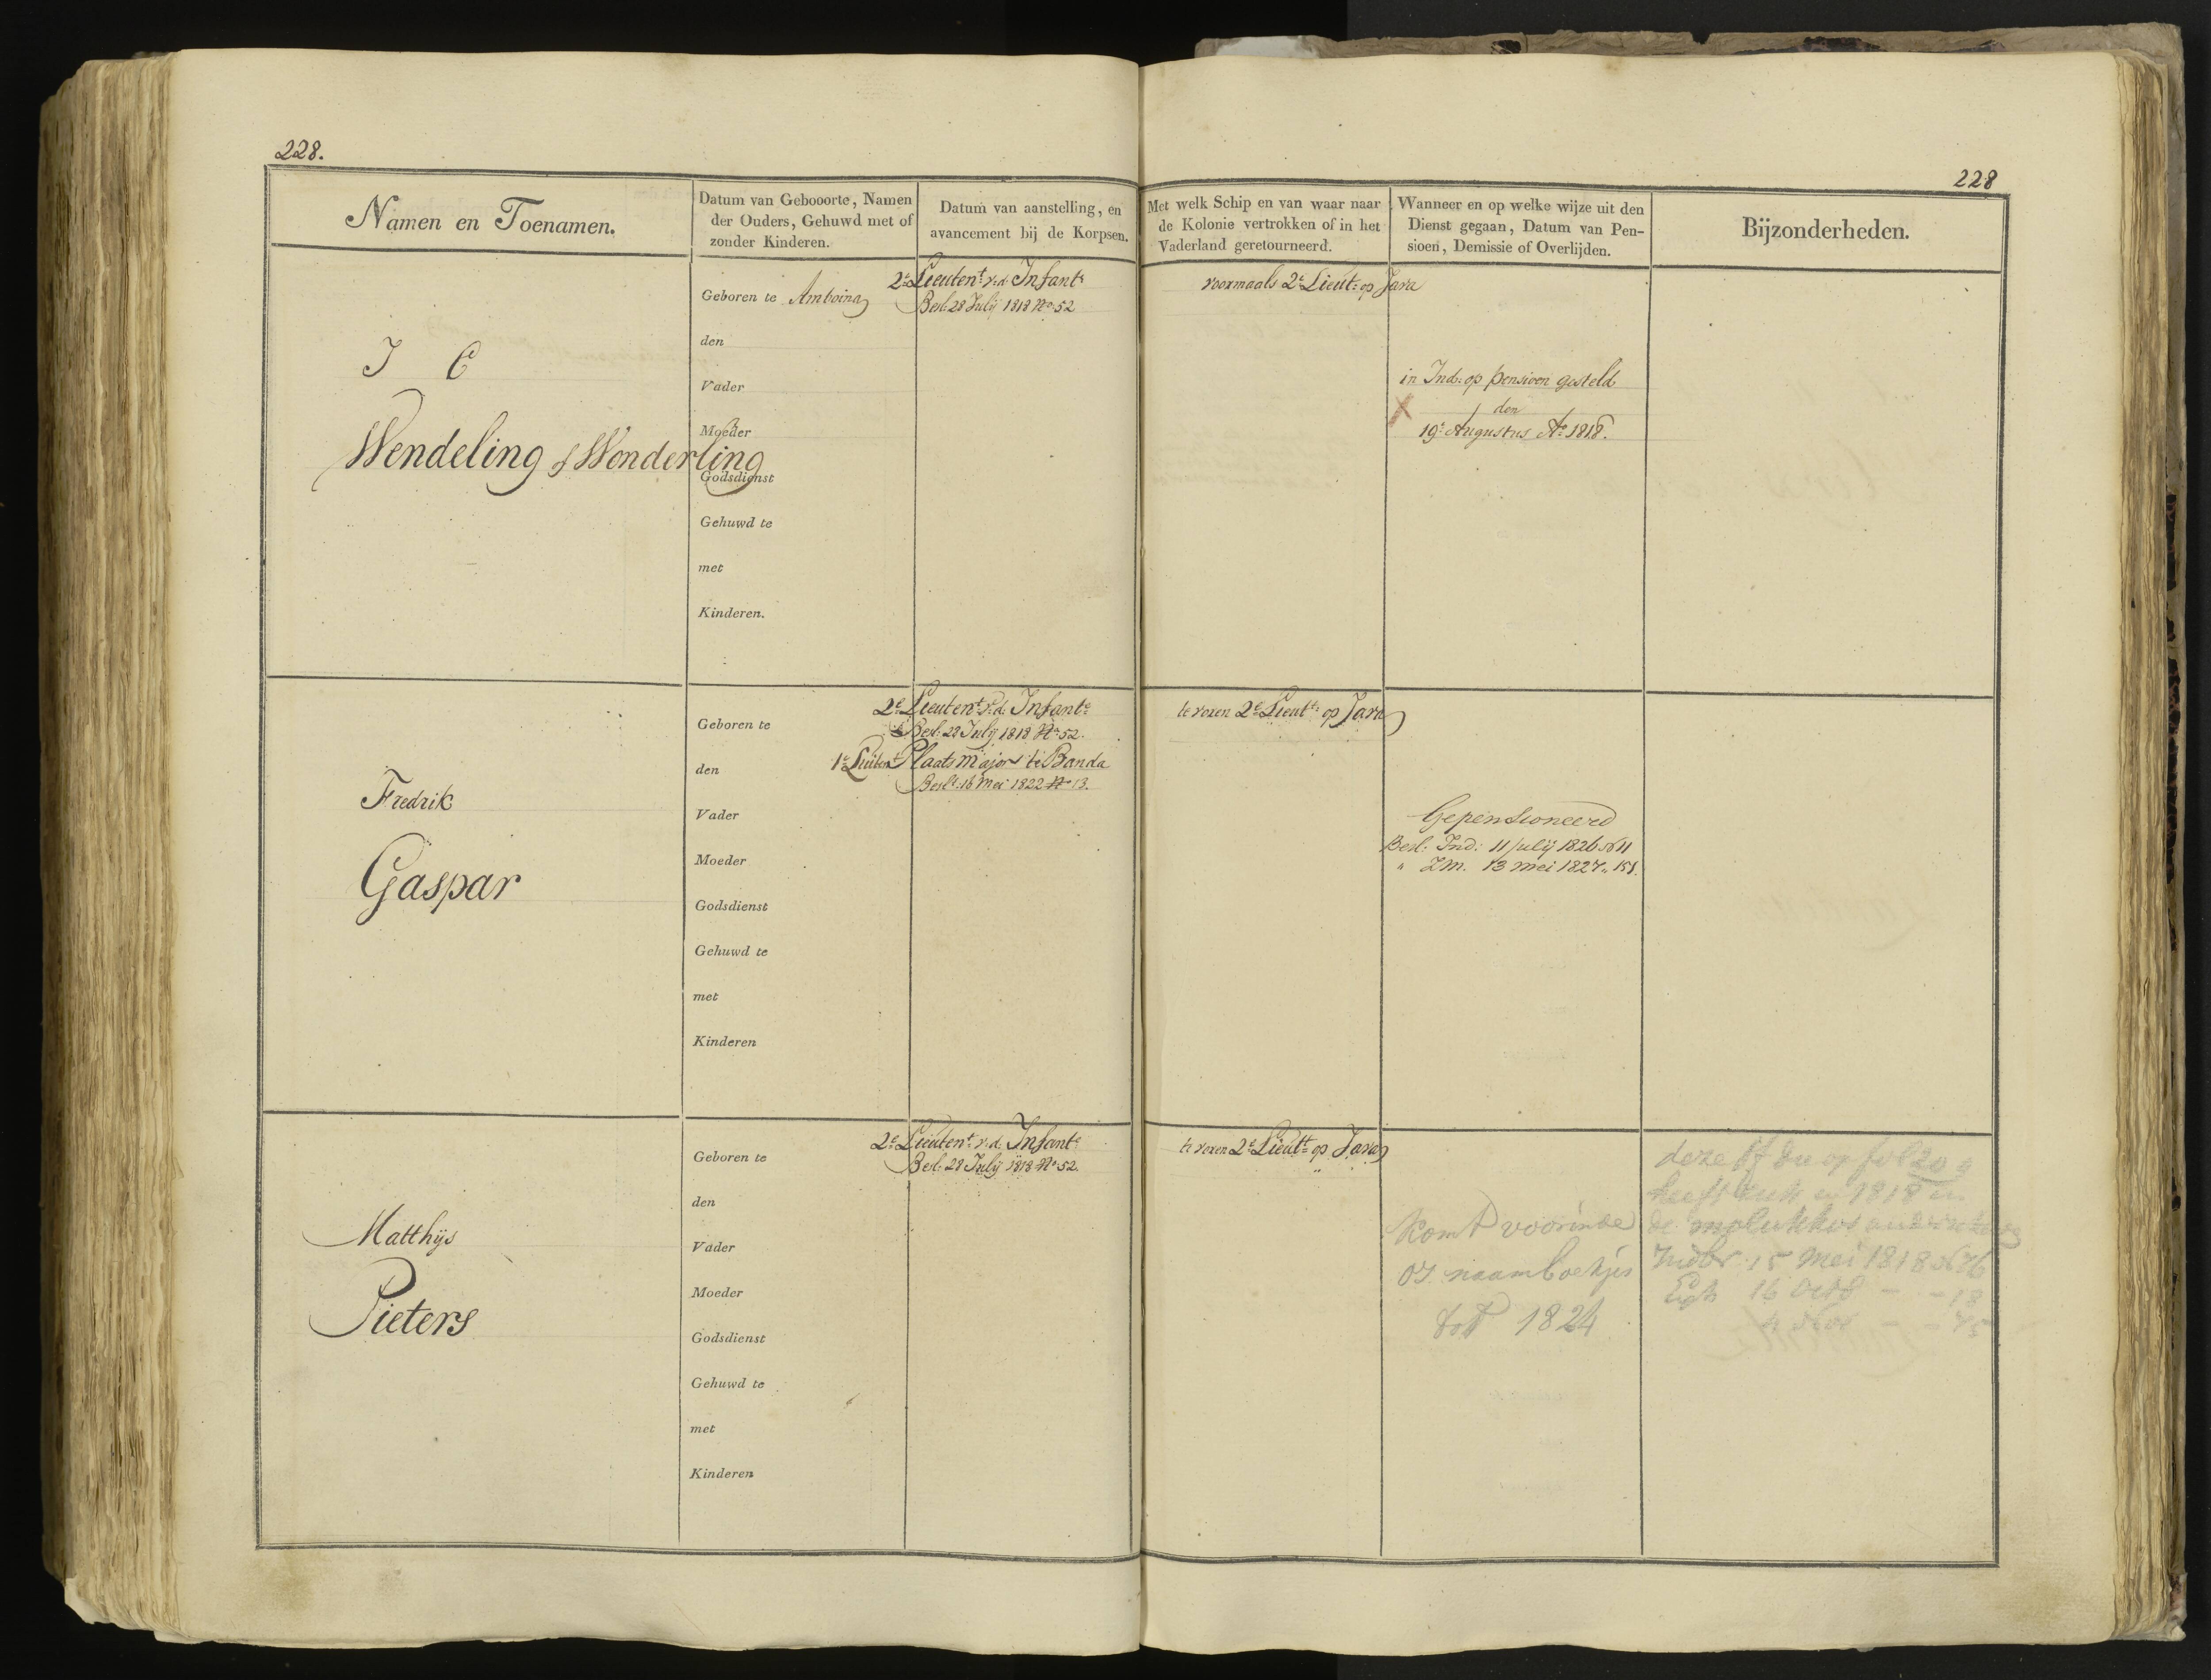 228.
228
Namen en Toenamen.
Datum van Gebooorte, Namen
der Ouders, Gehuwd met of
zonder Kinderen.
Datum van aanstelling, en
avancement bij de Korpsen.
Met welk Schip en van waar naar
de Kolonie vertrokken of in het
Vaderland geretourneerd.
Wanneer en op welke wijze uit den
Dienst gegaan, Datum van Pen-
sioen, Demissie of Overlijden.
Bijzonderheden.
J C
Wendeling of Wonderling
Geboren te Amboina
den
Vader
Moeder
Godsdienst
Gehuwd te
met
Kinderen.
2e Lieutent v.d. Infante
Besl: 28 Julij 1818 No 52
voormaals 2e Lieut: op Java
in Ind: op pensioen gesteld
den
19e Augustus Ao 1818.
Fredrik
Gaspar
Geboren te
den
Vader
Moeder
Godsdienst
Gehuwd te
met
Kinderen
2e Lieutent v.d. Infante
Besl: 28 Julij 1818 No 52.
1e Luitent Plaats major te Banda
Beslt. 16 Mei 1822 No 13.
te voren 2e Lieutt: op Java
Gepensioneerd
Besl. Ind: 11 julij 1826 No 11
" ZM. 13 mei 1827 "
Matthijs
Pieters
Geboren te
den
Vader
Moeder
Godsdienst
Gehuwd te
met
Kinderen
2e Lieutent v.d. Infante
Besl: 28 Julij 1818 No 52.
te voren 2e Lieutt op Java
Komt voor in de
OI. naamboekjes
tot 1824
deze of die op fol
heeft zich in 1818 in
de molukkos
Indbr 15 Mei 1818 No 76
16 - - 18
4 Nov - - 75